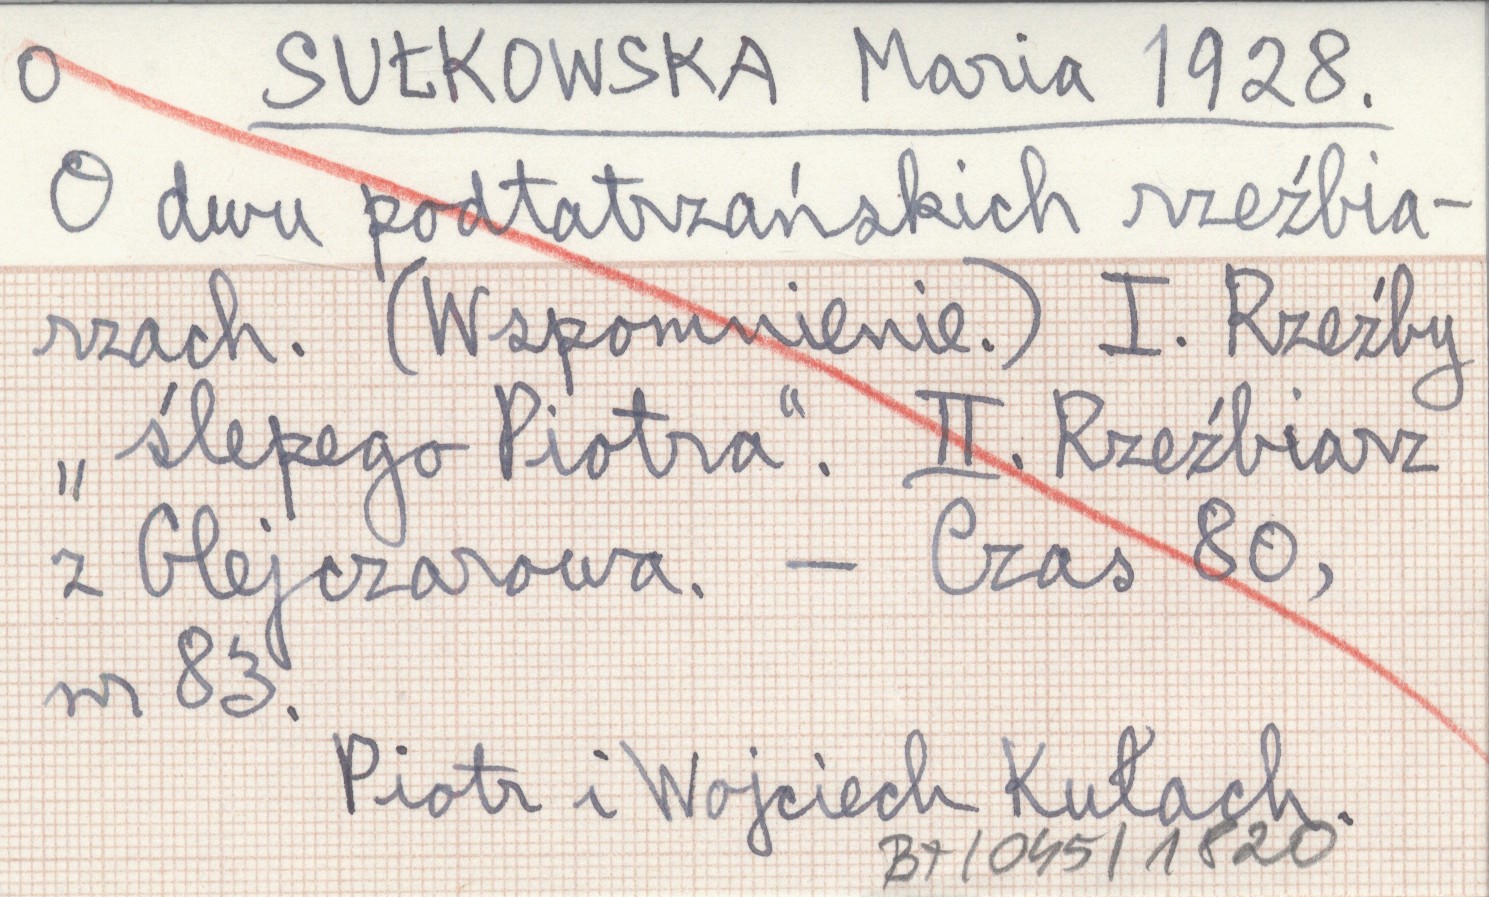 o SUŁKOWSKA Maria 1928.
O dwu podtatrzańskich rzeźbia-
rzach. (Wspomnienie.) I. Rzeźby
„ślepego Piotra“. II. Rzeźbiarz
z Glejczarowa. — Czas 80,
nr 83.
Piotr i Wojciech Kułach.
BT/045/1820